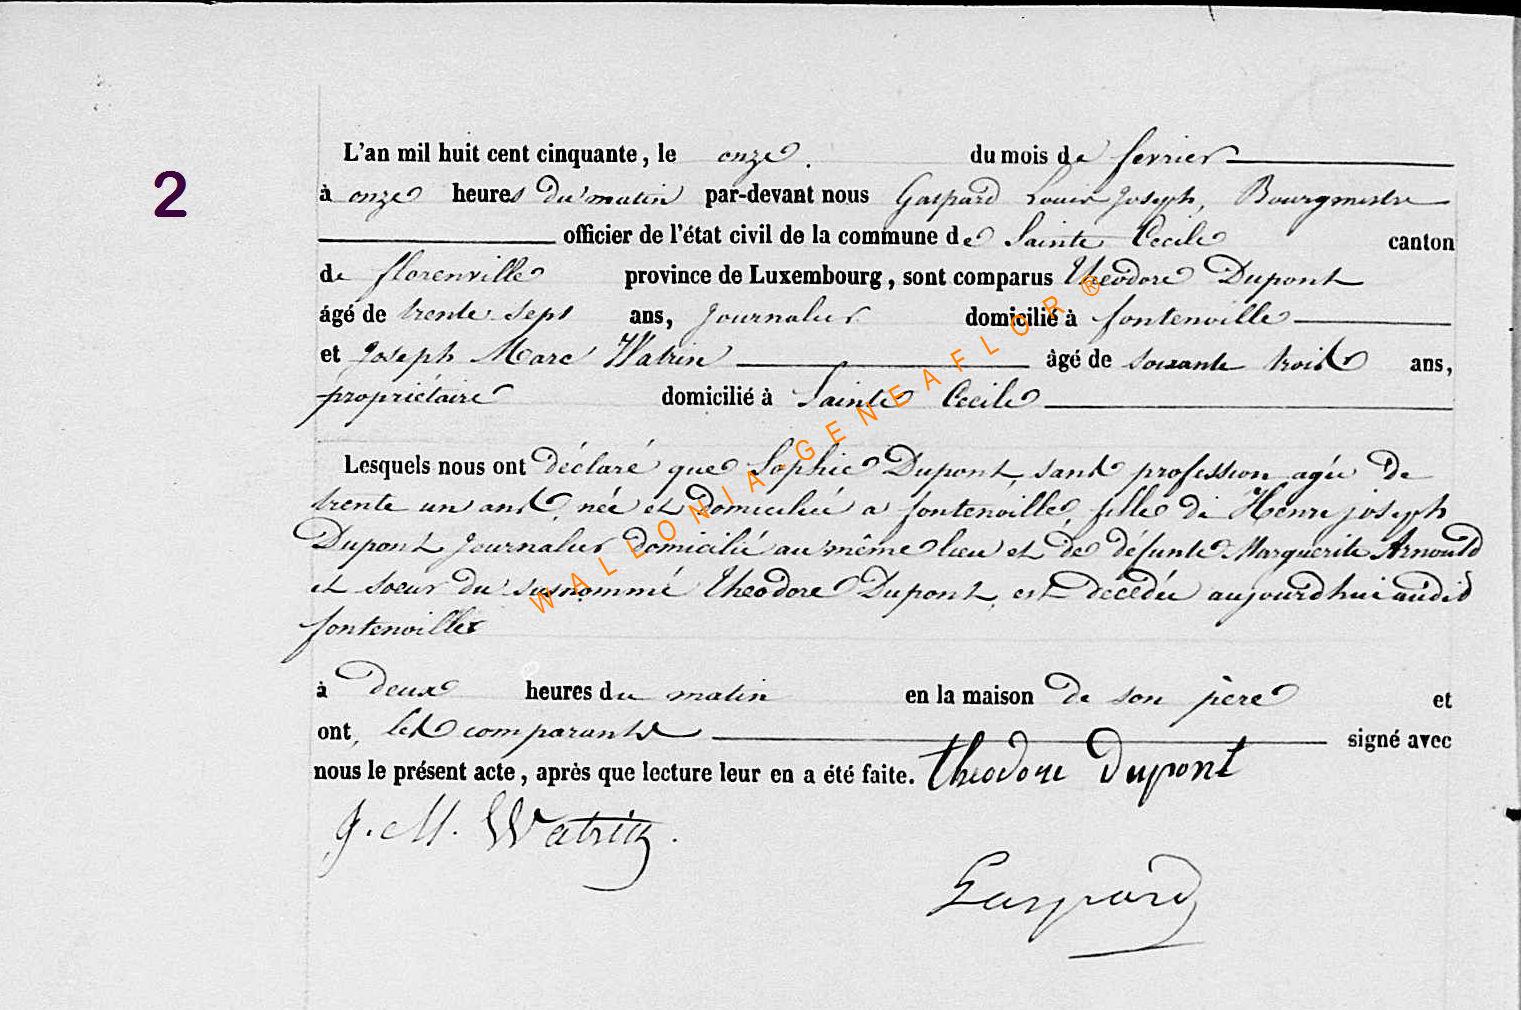 L'an mil huit cent cinquante, le onze. du mois de fevrier
2
à onze heures du matin par-devant nous Gaspard Louis Joseph, Bourgmestre
officier de l'état civil de la commune de Sainte Cecile canton
de florenville province de Luxembourg, sont comparus Theodore Dupont
âgé de trente sept ans, journalier domicilié à fontenoille
et Joseph Marc Watrin âgé de soixante trois ans,
propriétaire domicilié à Sainte Cecile
Lesquels nous ont déclaré que Sophie Dupont, sans profession agée de
trente un ans, née et domiciliée a fontenoille, fille de Henri joseph
Dupont journalier domicilié au même lieu et de défunte Marguerite Arnould
et soeur du susnommé Theodore Dupont, est décédée aujourdhui audit
fontenoille
à deux heures du matin en la maison de son père et
ont, les comparants signé avec
nous le présent acte, après que lecture leur en a été faite. theodore dupont
J. M. Watrin.
Gaspard
WALLONIA-GENEAFLOR ®